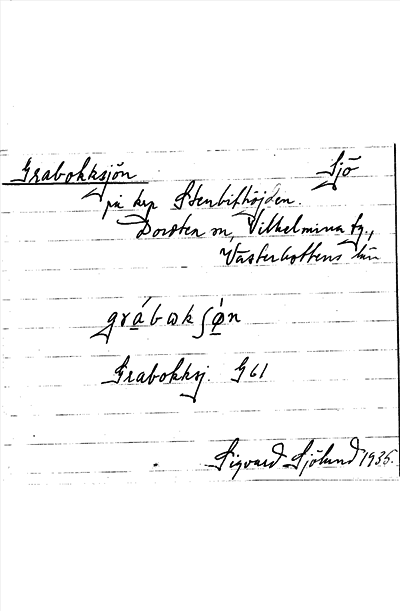 Grabokksjön Sjö
på krp Stenbithöjden.
Dorotea m, Vilhelmina tg.,
Västerbottens län
grábɷkʃǿn
Grabokksj. G61
Sigvard Sjölund 1935.